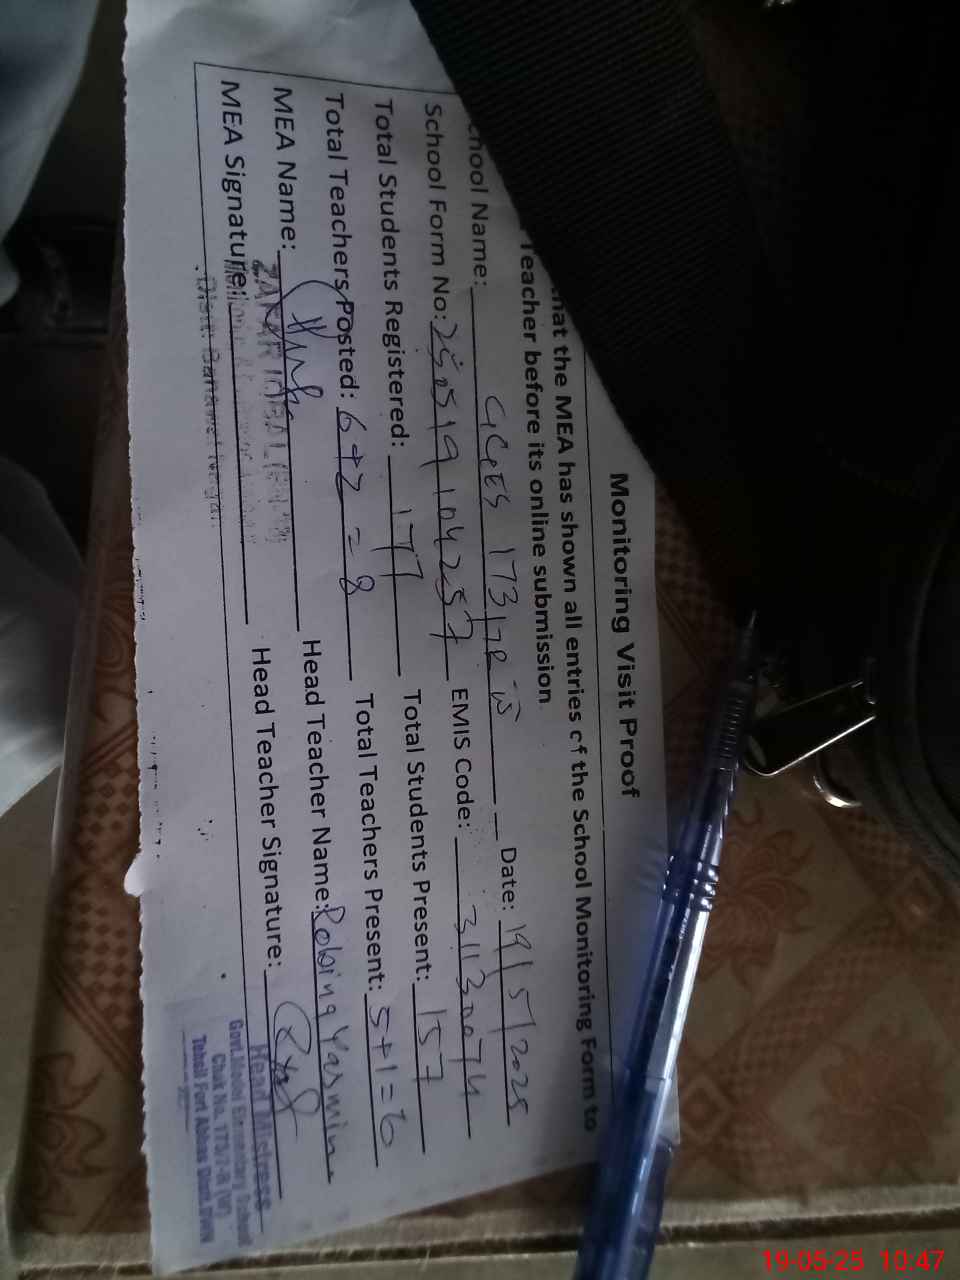 Monitoring Visit Proof
that the MEA has shown all entries of the School Monitoring Form to
Teacher before its online submission
School Name: GGES 173/7R Date: 19/5/2025
School Form No: 250519104257 EMIS Code: 31130074
Total Students Registered: 177 Total Students Present: 157
Total Teachers Posted: 6+2=8 Total Teachers Present: 5+1=6
MEA Name: Head Teacher Name: Robina Yasmin
MEA Signature: Head Teacher Signature:
ZAFAR IQBAL
Distt: Bahawalnagar
Head Mistress
Govt. Model Elementary School
Chak No. 173/7-R (W)
Tehsil Fort Abbas Distt. BWN
19-05-25 10:47